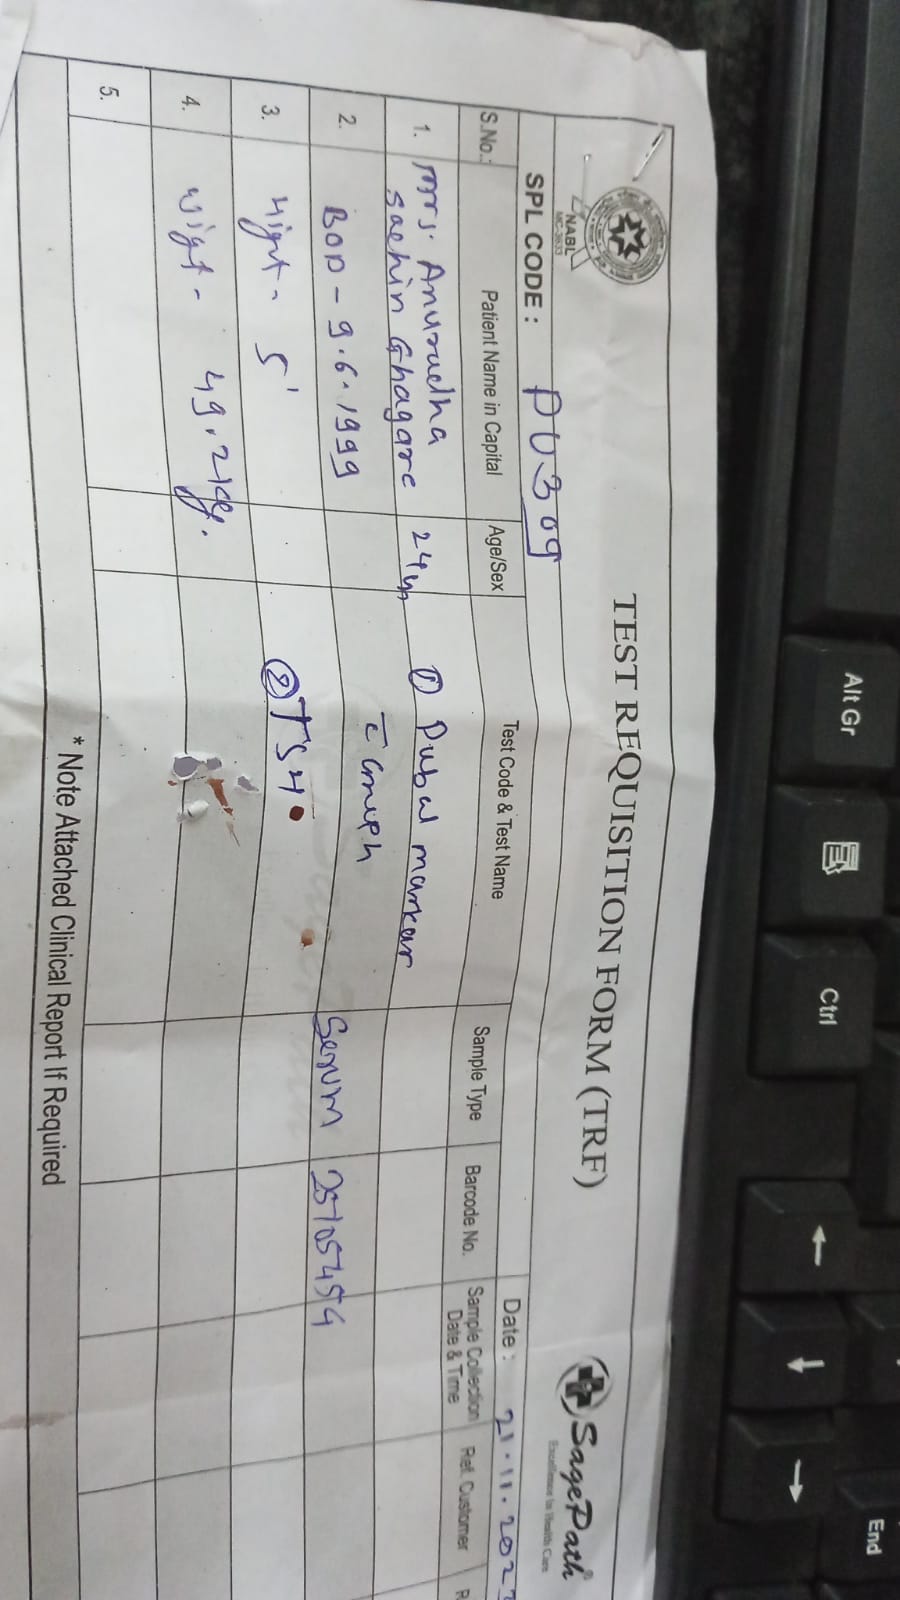 NABL
MC-3633
TEST REQUISITION FORM (TRF)
SagePath®
Excellence In Health Care
SPL CODE : PU309
Date : 21.11.202
S.No.: Patient Name in Capital Age/Sex Test Code & Test Name Sample Type Barcode No. Sample Collection Date & Time Ref. Customer R
1. Mrs. Anuradha 24 yr ① Dubal markar
Sachin Ghagare
2. BOD - 9.6.1999 c̄ Graph Serum 25105454
3. Hight - 5' ② TSH
4. Wight - 49.2 kg.
5.
* Note Attached Clinical Report If Required
Alt Gr
Ctrl
End